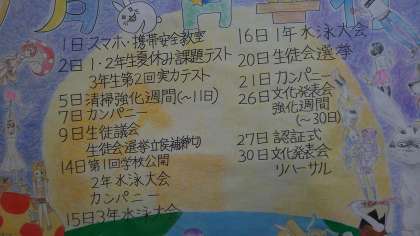 1日スマホ・携帯安全教室
2日1・2年生夏休み課題テスト
3年生第2回実力テスト
5日清掃強化週間(〜11日)
7日カンパニー
9日生徒議会
生徒会選挙立候補締切
14日第1回学校公開
2年水泳大会
カンパニー
15日3年水泳大会
16日1年水泳大会
20日生徒会選挙
21日カンパニー
26日文化発表会
強化週間
(〜30日)
27日認証式
30日文化発表会
リハーサル